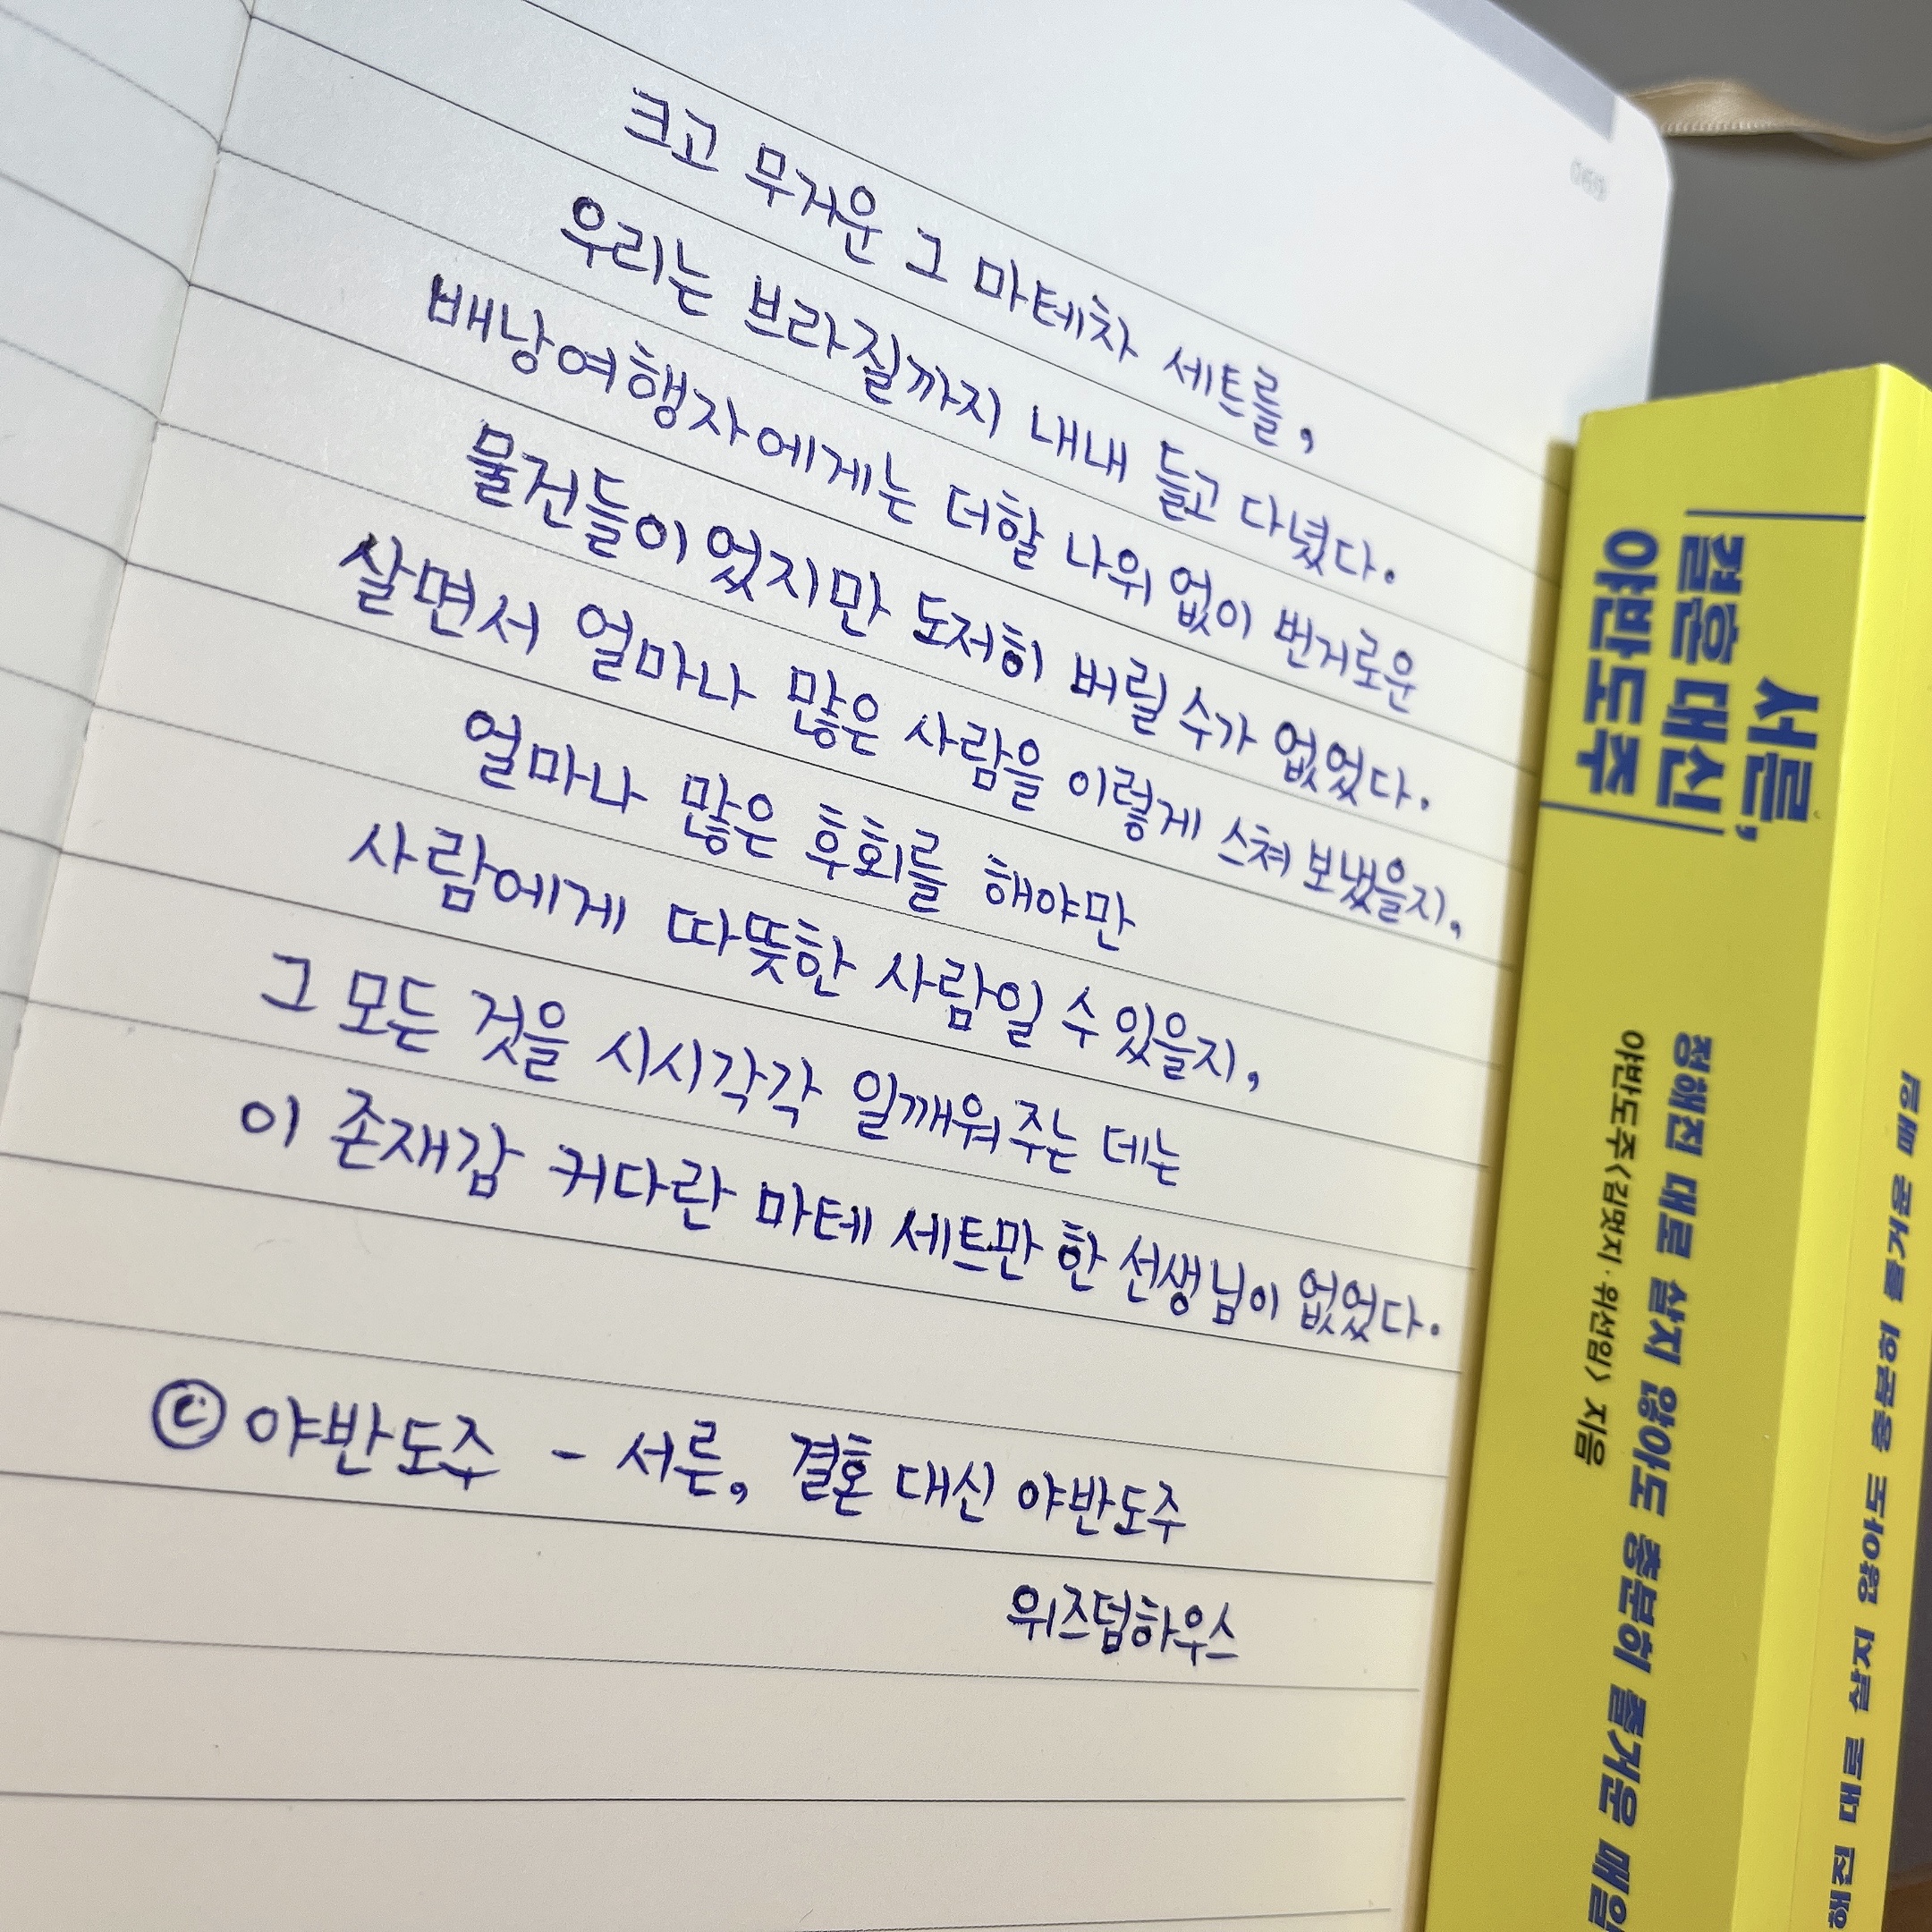 크고 무거운 그 마테차 세트를,
우리는 브라질까지 내내 들고 다녔다.
배낭여행자에게는 더할 나위 없이 번거로운
물건들이었지만 도저히 버릴 수가 없었다.
살면서 얼마나 많은 사람을 이렇게 스쳐 보냈을지,
얼마나 많은 후회를 해야만
사람에게 따뜻한 사람일 수 있을지,
그 모든 것을 시시각각 일깨워주는 데는
이 존재감 커다란 마테 세트만 한 선생님이 없었다.
© 야반도주 - 서른, 결혼 대신 야반도주
위즈덤하우스
서른,
결혼 대신
야반도주
정해진 대로 살지 않아도 충분히 즐거운 매일
야반도주<김멋지·위선임> 지음